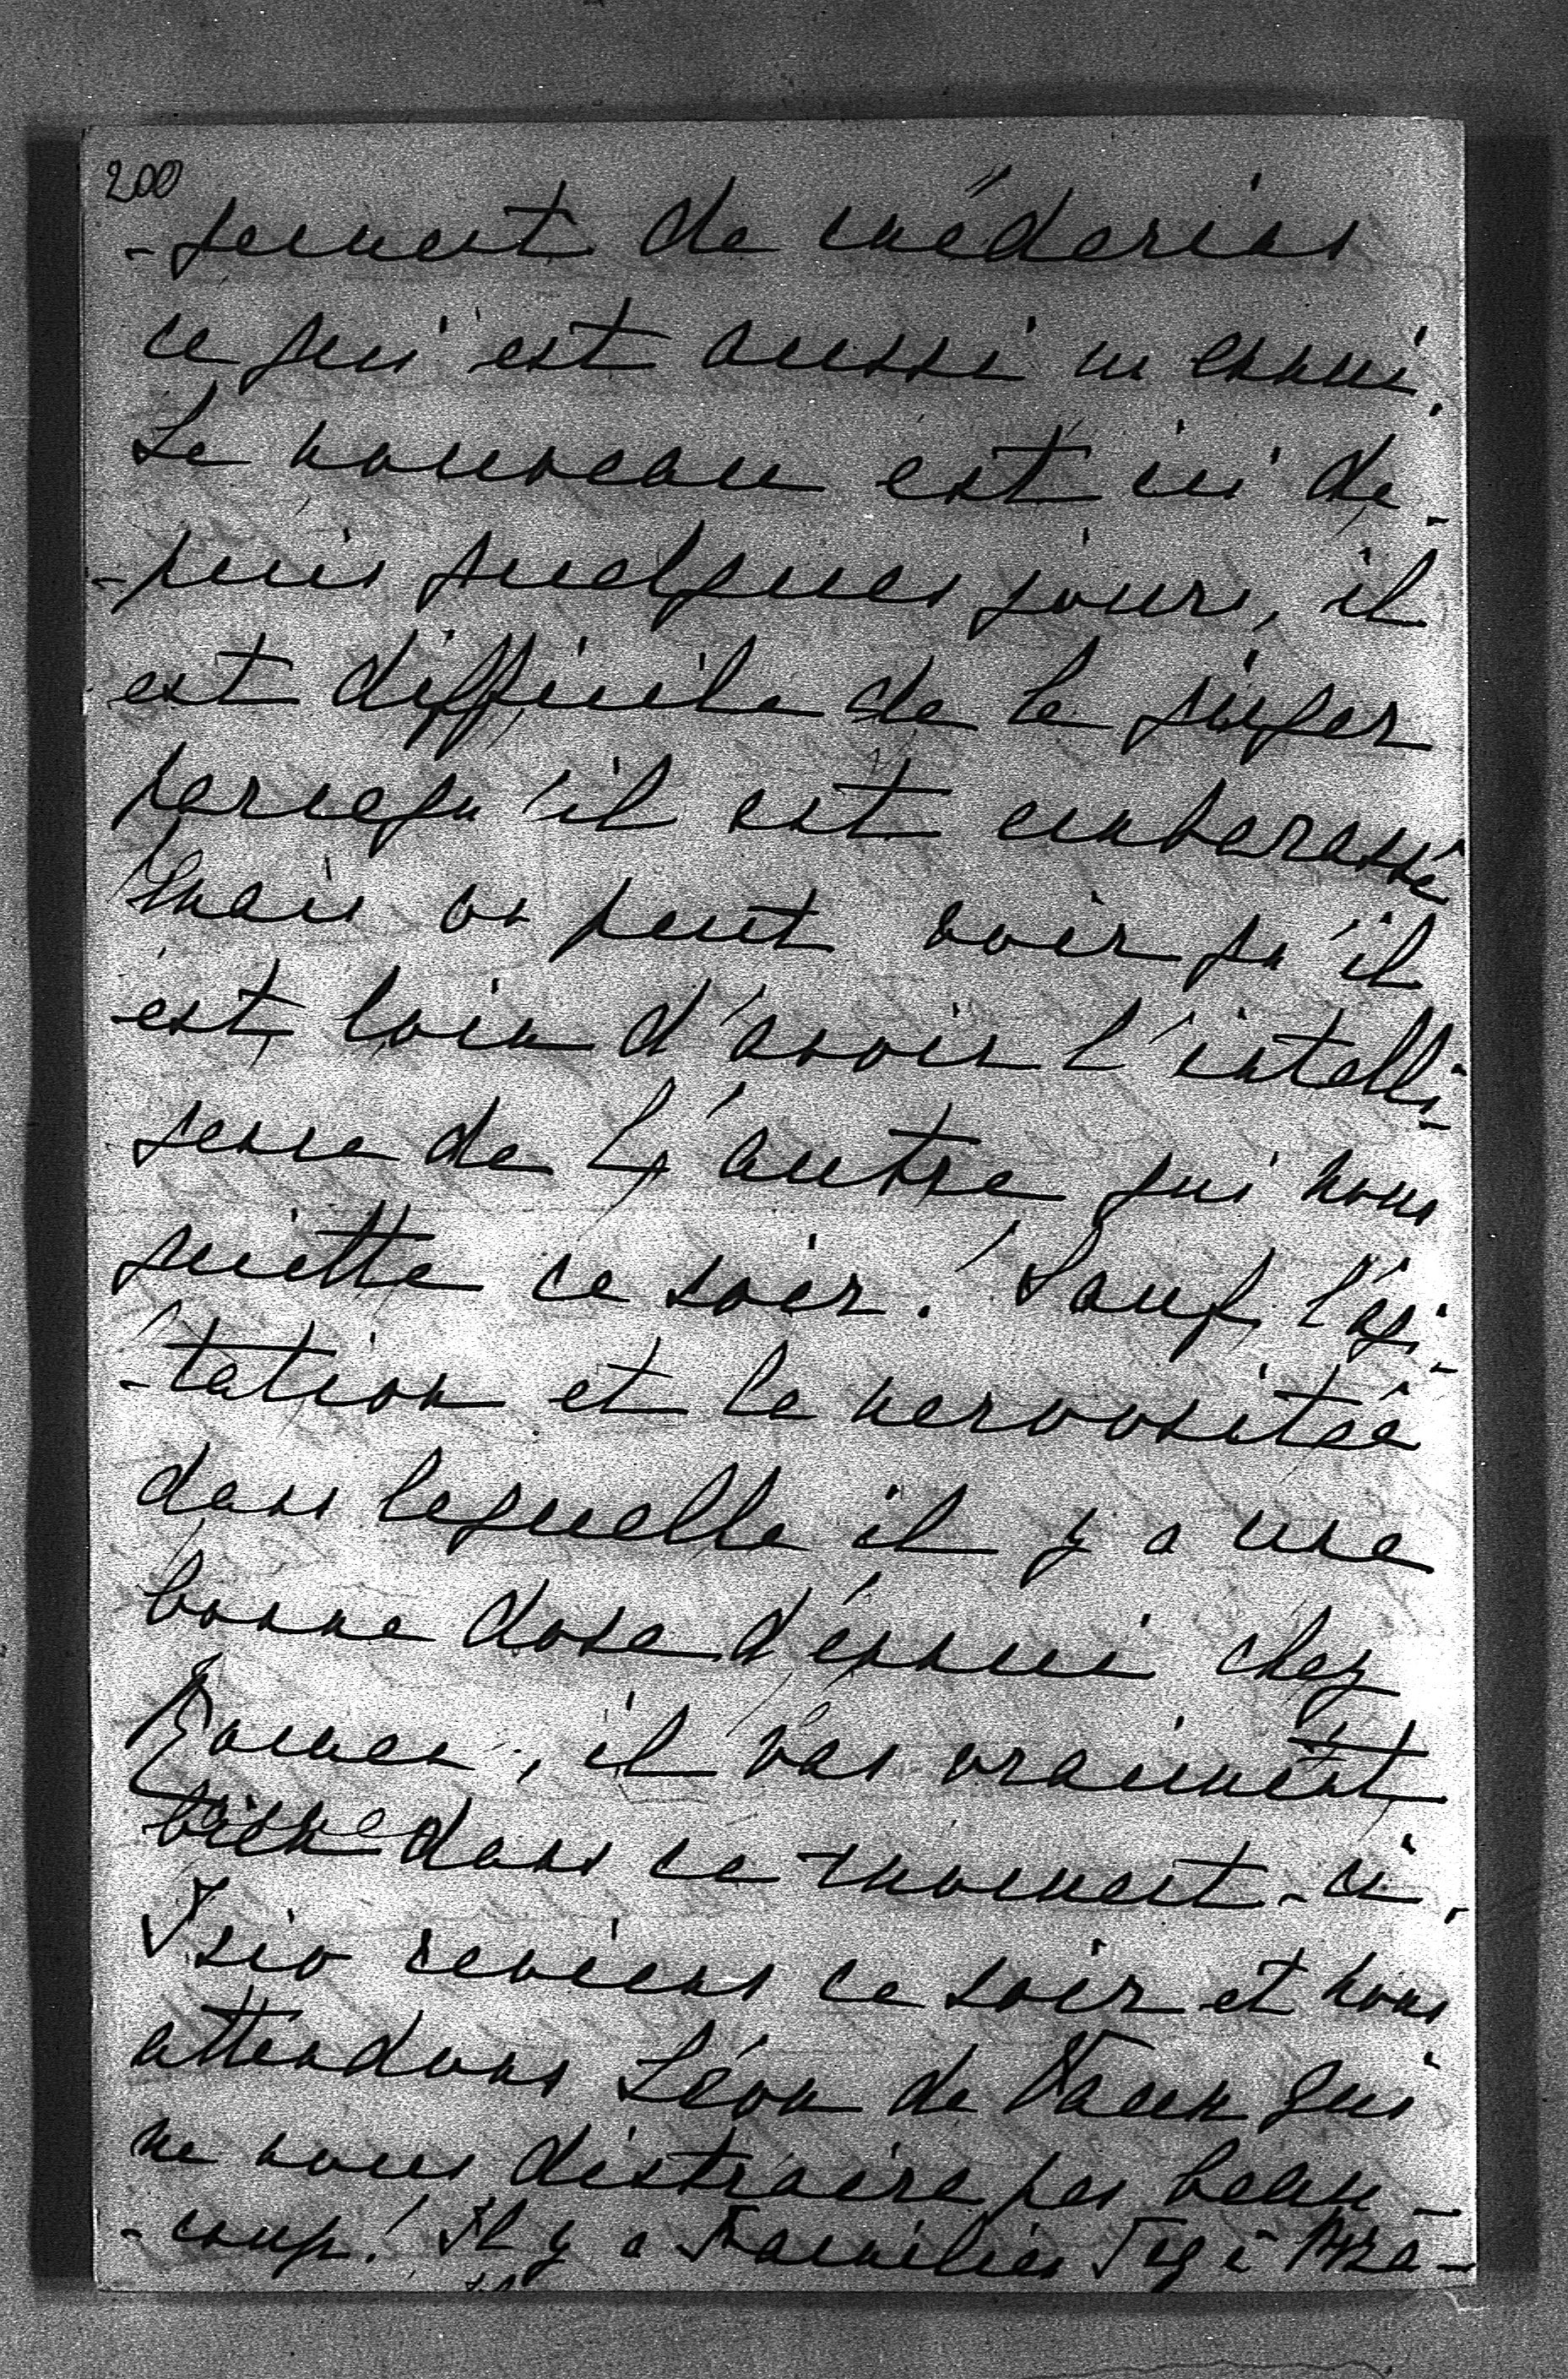 200
-gement de médecins
ce qui est aussi un ennui.
Le nouveau est ici de-
-puis quelques jours, il
est difficile de le juger
parcequ'il est embarassé
mais on peut voir qu'il
est loin d'avoir l'intelli-
gence de l'autre qui nous
quitte ce soir! Sauf l'agi-
-tation et la nervositeé
dans laquelle il y a une
bonne dose d'ennui chez
il vas vraiment
bien dans ce moment-ci.
reviens ce soir et nous
attendons Léon de Vaux qui
ne nous distraira pas beau-
-coup! Il y a Familien Tag à